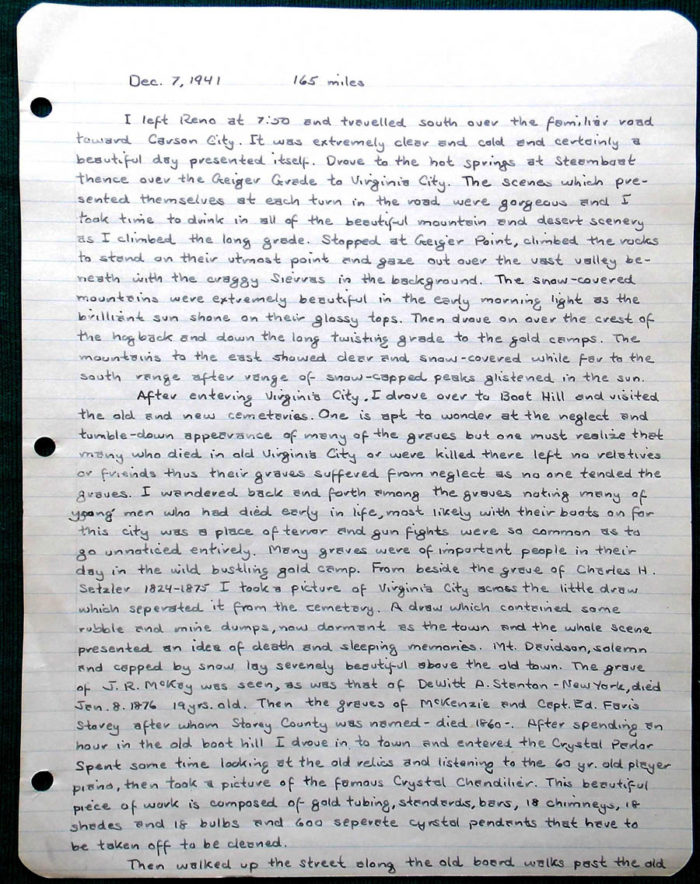 Dec. 7, 1941 165 miles
I left Reno at 7:50 and travelled south over the familiar road
toward Carson City. It was extremely clear and cold and certainly a
beautiful day presented itself. Drove to the hot springs at Steamboat
thence over the Geiger Grade to Virginia City. The scenes which pre-
sented themselves at each turn in the road were gorgeous and I
took time to drink in all of the beautiful mountain and desert scenery
as I climbed the long grade. Stopped at Geiger Point, climbed the rocks
to stand on their utmost point and gaze out over the vast valley be-
neath with the craggy Sierras in the background. The snow-covered
mountains were extremely beautiful in the early morning light as the
brilliant sun shone on their glossy tops. Then drove on over the crest of
the hogback and down the long twisting grade to the gold camps. The
mountains to the east showed clear and snow-covered while far to the
south range after range of snow-capped peaks glistened in the sun.
After entering Virginia City, I drove over to Boot Hill and visited
the old and new cemeteries. One is apt to wonder at the neglect and
tumble-down appearance of many of the graves but one must realize that
many who died in old Virginia City or were killed there left no relatives
or friends thus their graves suffered from neglect as no one tended the
graves. I wandered back and forth among the graves noting many of
young men who had died early in life, most likely with their boots on for
this city was a place of terror and gun fights were so common as to
go unnoticed entirely. Many graves were of important people in their
day in the wild bustling gold camp. From beside the grave of Charles H.
Setzler 1824-1875 I took a picture of Virginia City across the little draw
which seperated it from the cemetary. A draw which contained some
rubble and mine dumps, now dormant as the town and the whole scene
presented an idea of death and sleeping memories. Mt. Davidson, solemn
and capped by snow lay serenely beautiful above the old town. The grave
of J. R. McKay was seen, as was that of DeWitt A. Stanton - New York, died
Jan. 8. 1876 19 yrs. old. Then the graves of McKenzie and Capt. Ed. Faris
Storey after whom Storey County was named - died 1860-. After spending an
hour in the old boot hill I drove in to town and entered the Crystal Parlor
Spent some time looking at the old relics and listening to the 60 yr. old player
piano, then took a picture of the famous Crystal Chandilier. This beautiful
piece of work is composed of gold tubing, standards, bars, 18 chimneys, 18
shades and 18 bulbs and 600 seperate cyrstal pendants that have to
be taken off to be cleaned.
Then walked up the street along the old board walks past the old